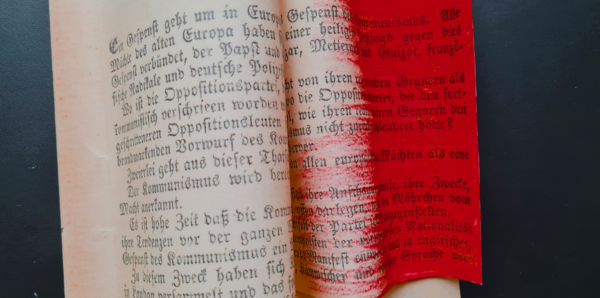 Ein Gespenst geht um in Europa Gespenst des Kommunismus. Alle
Mächte des alten Europa haben einer heiligen Hetzjagd gegen dies
Gespenst verbündet, der Papst und Czar, Metternich Guizot, franzö-
sische Radikale und deutsche Polizi
Wo ist die Oppositionspartei, nicht von ihren Gegnern als
kommunistisch verschrieen worden wo die Oppositionspartei, die den fort-
geschritteneren Oppositionsleuten wie ihren Gegnern den
brandmarkenden Vorwurf des Kommunismus nicht zurückgeschleudert hätte?
Zweierlei geht aus dieser Thatsache hervor.
Der Kommunismus wird bereits allen europäischen Mächten als eine
Macht anerkannt.
Es ist hohe Zeit daß die Kommunisten ihre Anschauungsweise, ihre Zwecke,
ihre Tendenzen vor der ganzen darlegen, Mährchen vom
Gespenst des Kommunismus ein der Partei entgegenstellen.
Zu diesem Zweck haben sich der Nationalität
in London versammelt und das Manifest entworfen, das in englischer,
Sprache